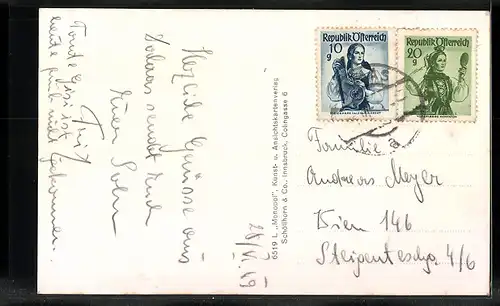 Herzliche Grüsse aus
sendet Euch
Euer Sohn
Fritz
Tante Gisi ist
heute früh nicht
gekommen.
28/VI.49
6519 L „Monopol", Kunst- u. Ansichtskartenverlag
Schöllhorn & Co., Innsbruck, Colingasse 6
Republik Österreich
10
g
Republik Österreich
20
g
Familie
Andreas Meyer
Wien 146
4/6